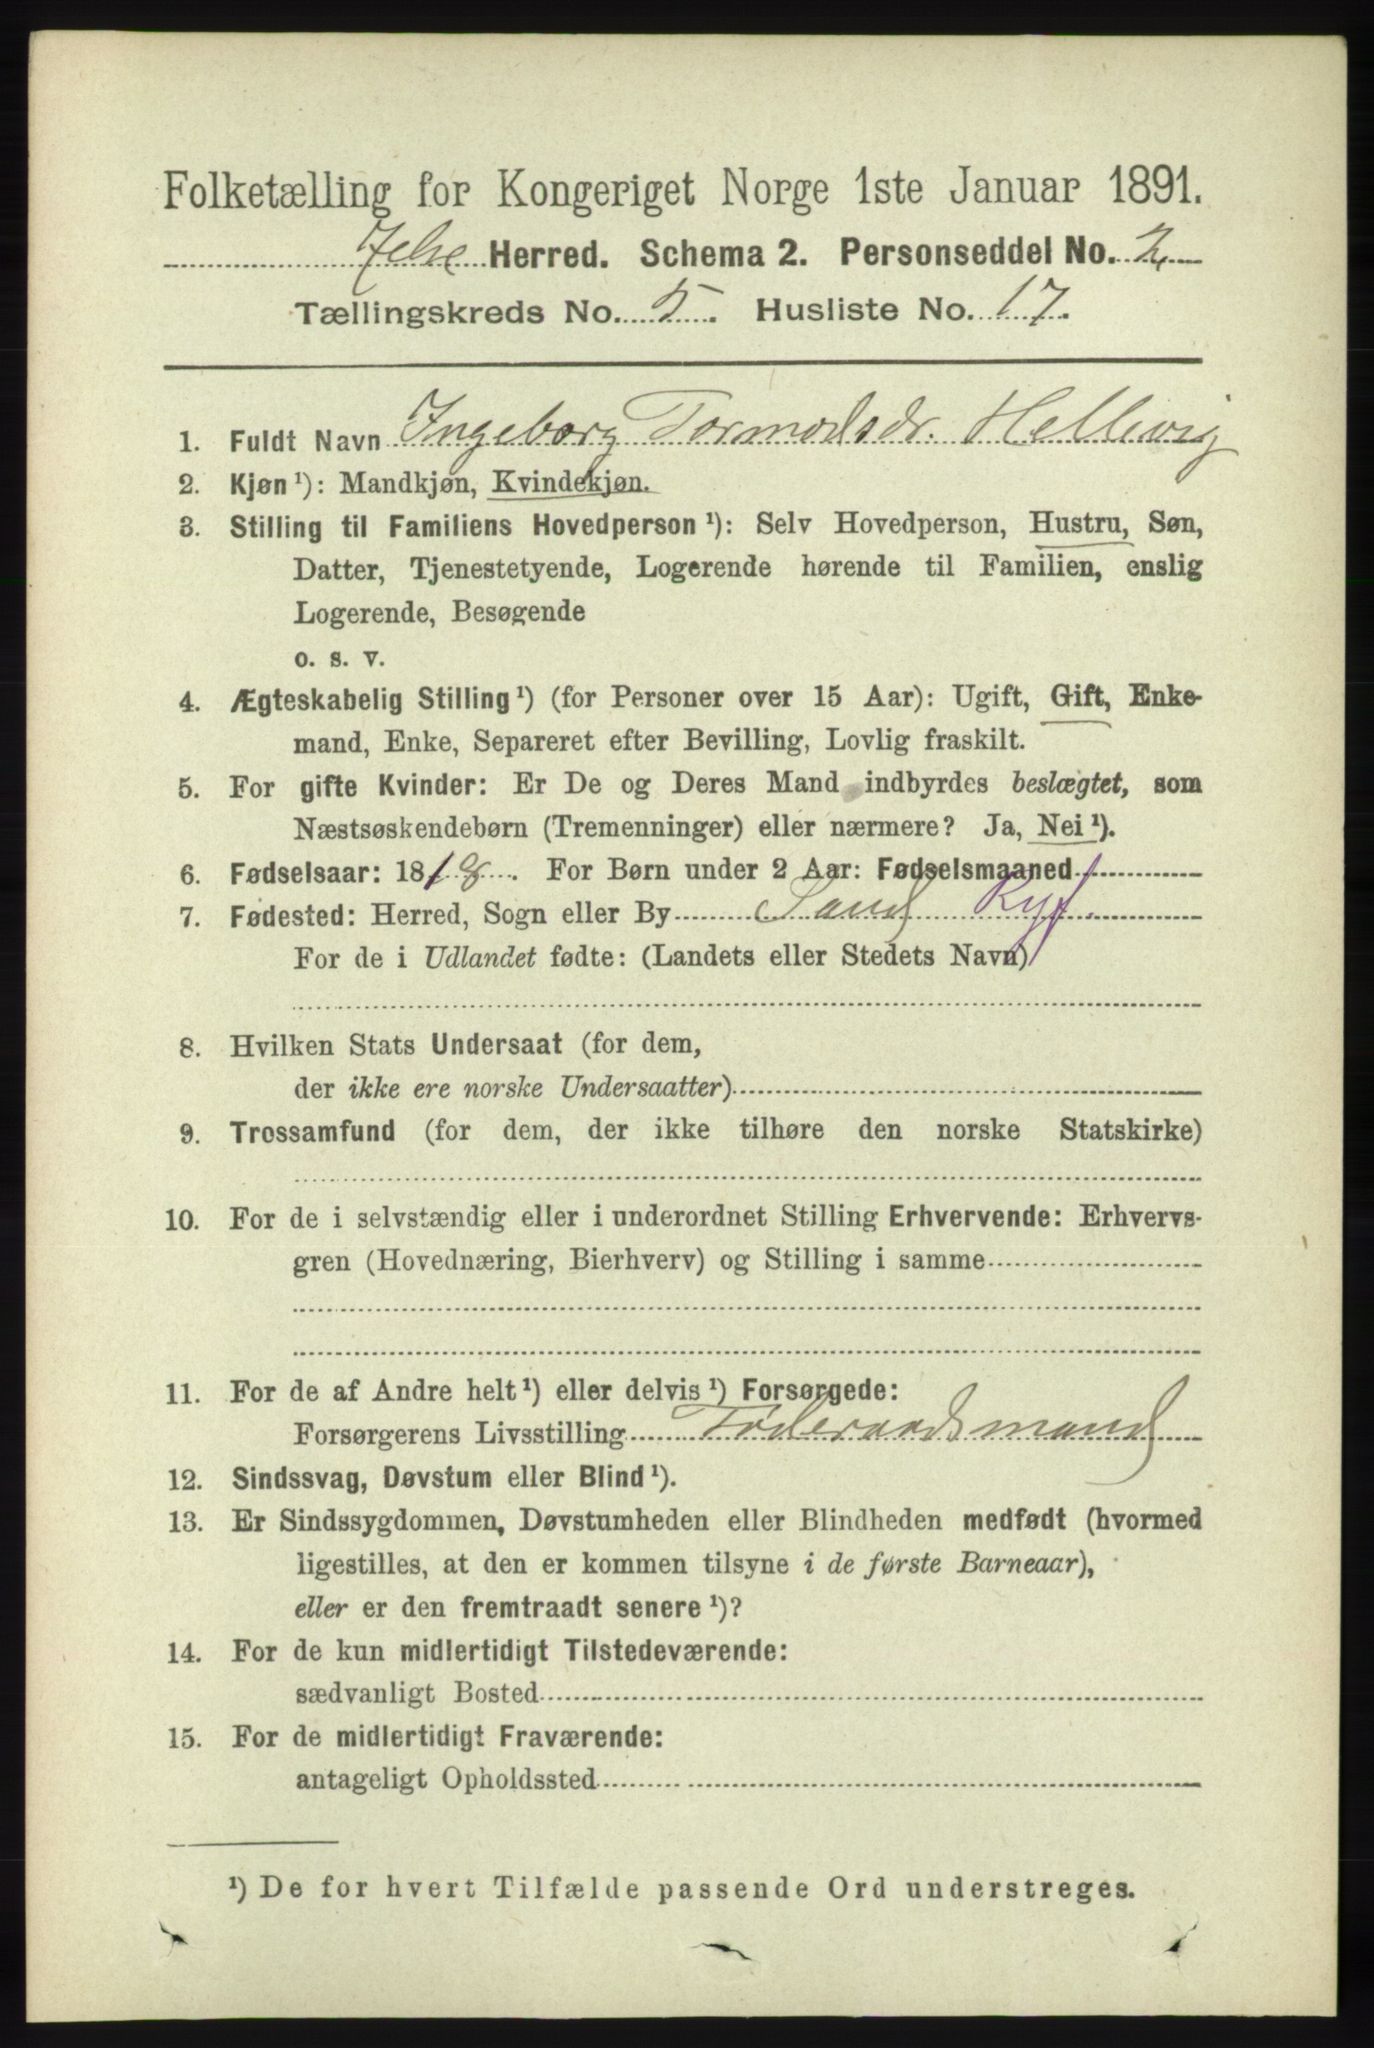 Folketælling for Kongeriget Norge 1ste Januar 1891.
Jelse Herred. Schema 2. Personseddel No. 2
Tællingskreds No. 5. Husliste No. 17.
1. Fuldt Navn Ingeborg Tormodsdr. Hellevig
2. Kjøn ¹): Mandkjøn, Kvindekjøn.
3. Stilling til Familiens Hovedperson ¹): Selv Hovedperson, Hustru, Søn,
Datter, Tjenestetyende, Logerende hørende til Familien, enslig
Logerende, Besøgende
o. s. v.
4. Ægteskabelig Stilling ¹) (for Personer over 15 Aar): Ugift, Gift, Enke-
mand, Enke, Separeret efter Bevilling, Lovlig fraskilt.
5. For gifte Kvinder: Er De og Deres Mand indbyrdes beslægtet, som
Næstsøskendebørn (Tremenninger) eller nærmere? Ja, Nei ¹).
6. Fødselsaar: 1818. For Børn under 2 Aar: Fødselsmaaned
7. Fødested: Herred, Sogn eller By Sand Ryf.
For de i Udlandet fødte: (Landets eller Stedets Navn)
8. Hvilken Stats Undersaat (for dem,
der ikke ere norske Undersaatter)
9. Trossamfund (for dem, der ikke tilhøre den norske Statskirke)
10. For de i selvstændig eller i underordnet Stilling Erhvervende: Erhvervs-
gren (Hovednæring, Bierhverv) og Stilling i samme
11. For de af Andre helt ¹) eller delvis ¹) Forsørgede:
Forsørgerens Livsstilling Føderaadsmand
12. Sindssvag, Døvstum eller Blind ¹).
13. Er Sindssygdommen, Døvstumheden eller Blindheden medfødt (hvormed
ligestilles, at den er kommen tilsyne i de første Barneaar),
eller er den fremtraadt senere ¹)?
14. For de kun midlertidigt Tilstedeværende:
sædvanligt Bosted
15. For de midlertidigt Fraværende:
antageligt Opholdssted
¹) De for hvert Tilfælde passende Ord understreges.